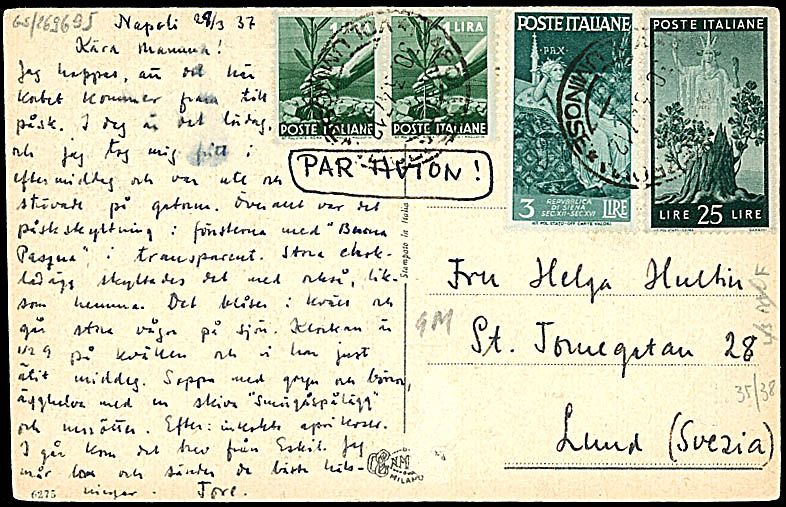 GS/269695
Napoli 29/3 37
Kära Mamma!
Jag hoppas, att det här
kortet kommer fram till
påsk. I dag är det lördag,
och jag tog mig fritt i
eftermiddag och var ute och
stuvade på gatorna. Överallt var det
påskskyltning i fönsterna med "Buona
Pasqua" i transparent. Stora chok-
ladägg skyltades det med också, lik-
som hemma. Det blåser i kväll och
går stora vågor på sjön. Klockan är
1/2 9 på kvällen och vi har just
ätit middag. Soppa med gryn och bönor,
ägghalva med en skiva "Smörgåspålägg"
och morötter. Efter: inkokta aprikoser.
I går kom det brev från Eskil. Jag
mår bra och sänder de bästa häls-
ningar. Tore.
6275
1 LIRA
POSTE ITALIANE
POSTE ITALIANE
POSTE ITALIANE
PAX
3 LIRE
REPVBBLICA
DI SIENA
SEC.XII-SEC.XVI
POSTE ITALIANE
LIRE 25 LIRE
PAR AVION!
Stampato in Italia
MILANO
Fru Helga Hultin
GM
St. Tomegatan 28
35/38
Lund (Svezia)